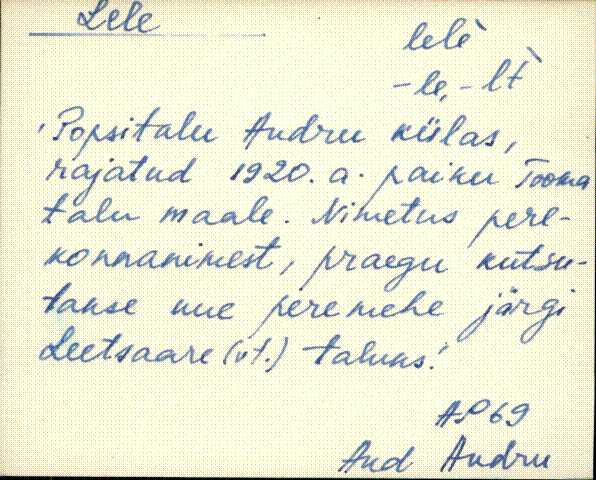 Lele
lelè
-le, -lt̀
'Popsitalu Andru külas,
rajatud 1920. a. paiku Tooma
talu maale. Nimetus pere-
konnanimest, praegu kutsu-
takse uue peremehe järgi
Leetsaare (vt.) taluks.'
AP 69
And Andru